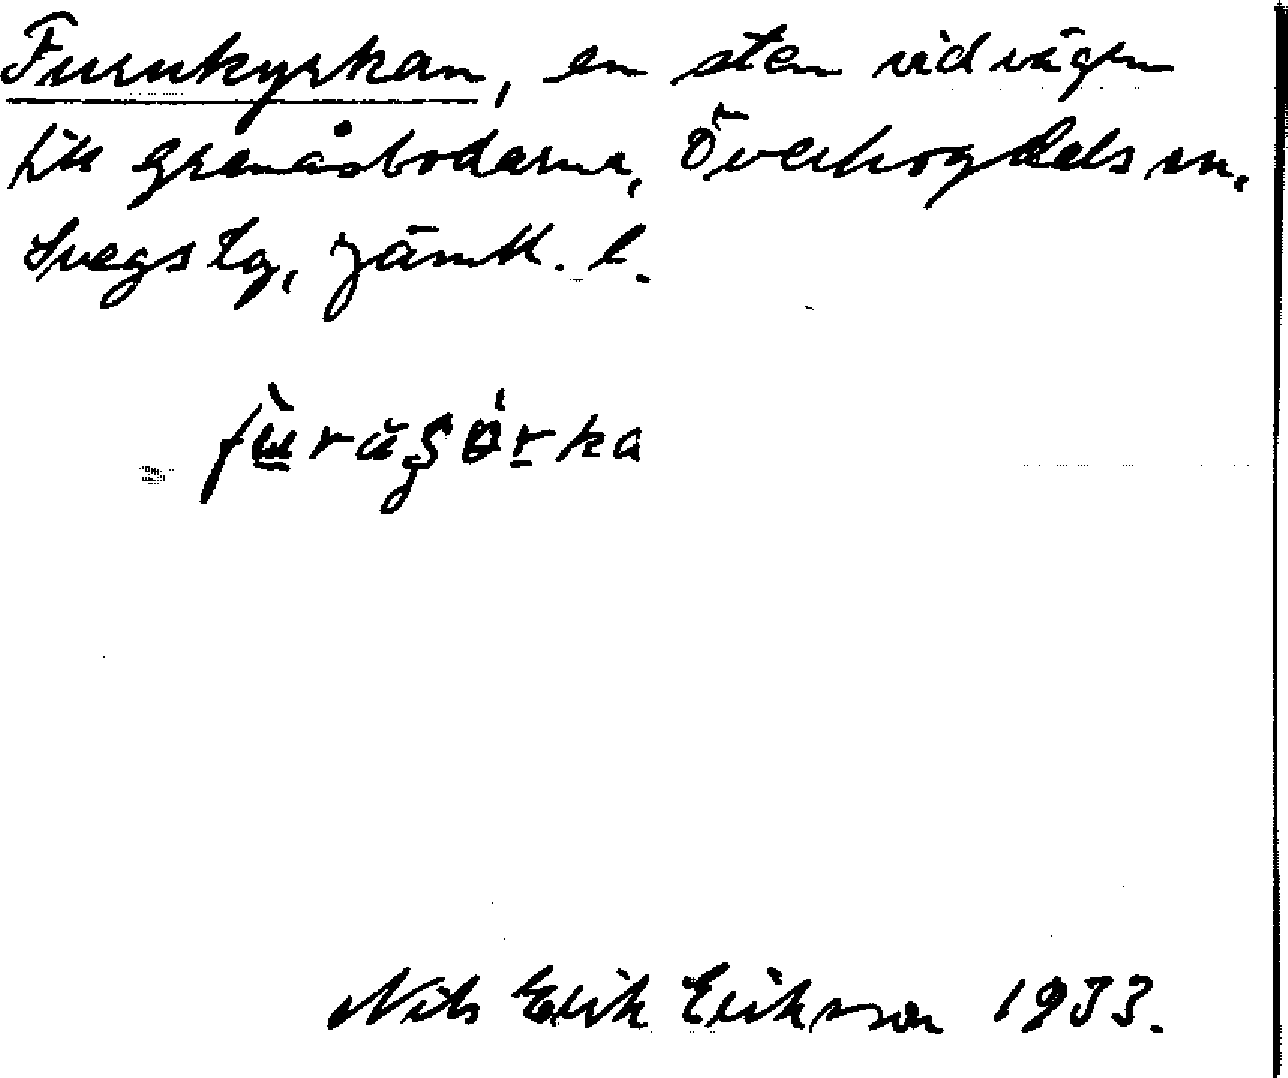 Furukyrkan, en sten vid vägen
till Grenåsbodarna, Överhogdals sn,
Svegs tg, Jämtl. l.
fùrug̨ǿrka
Nils Erik Eriksson 1933.